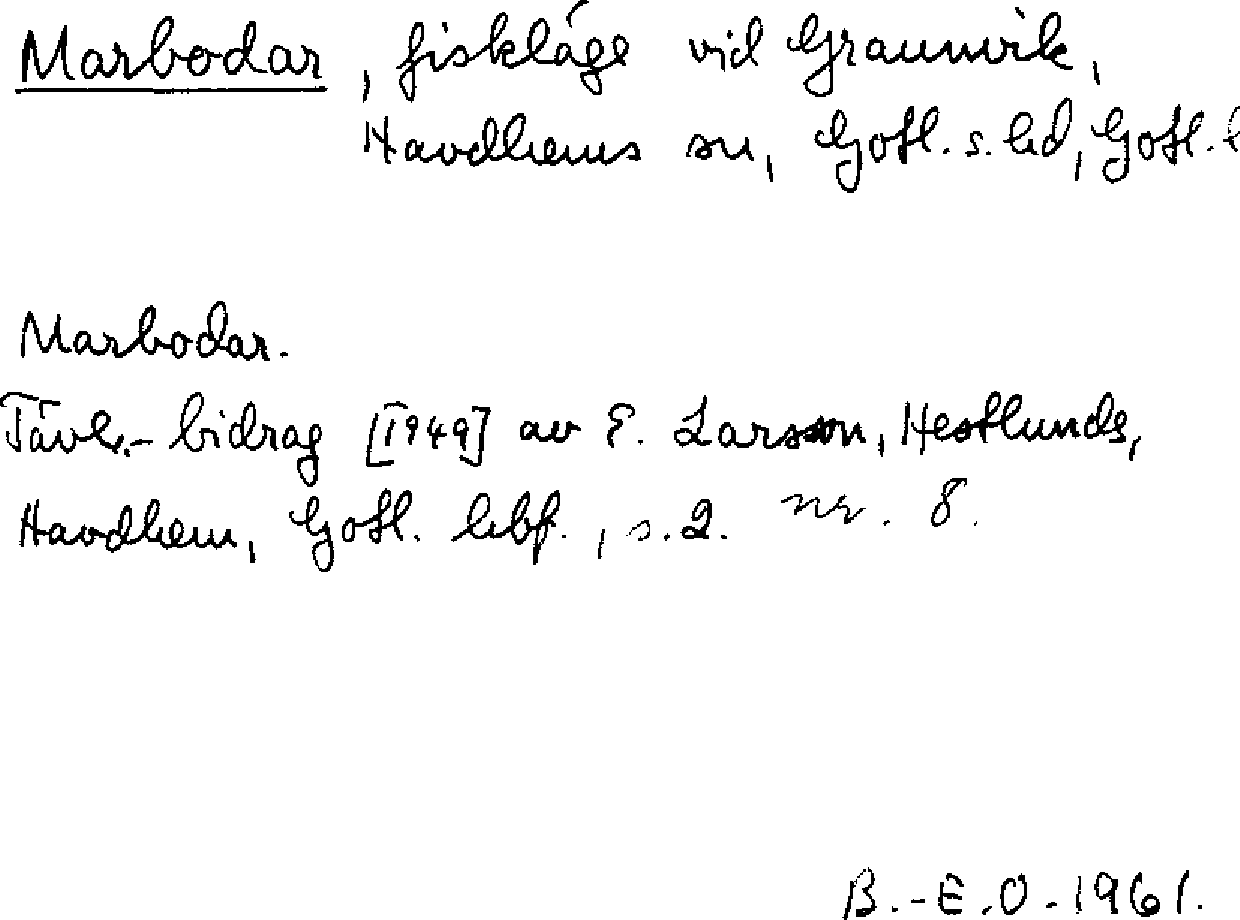 Marbodar, fiskläge vid Graumvik,
Havdhems sn, Gotl. s. hd, Gotl. l
Marbodar.
Tävl.-bidrag [1949] av E. Larsson, Hestlunds,
Havdhem, Gotl. hbf., s. 2. nr. 8.
B.-E.O. 1961.